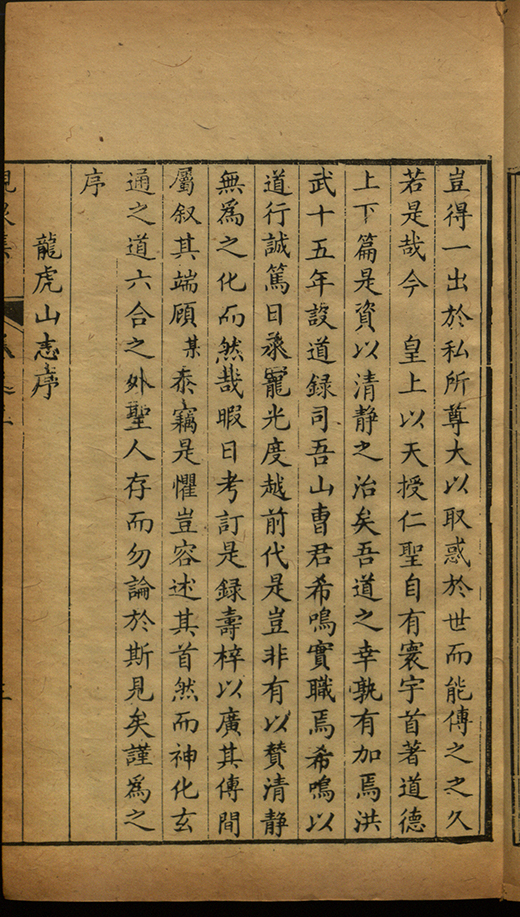 豈得一出於私所尊大以取惑於世而能傳之之久
若是哉今　皇上以天授仁聖自有寰宇首著道德
上下篇是資以清静之治矣吾道之幸孰有加焉洪
武十五年設道録司吾山曺君希鳴實職焉希鳴以
道行誠篤日承寵光度越前代是豈非有以賛清静
無為之化而然哉暇日考訂是録壽梓以廣其傳間
屬叙其端顧某忝竊是懼豈容述其首然而神化玄
通之道六合之外聖人存而勿論於斯見矣謹為之
序
龍虎山志序